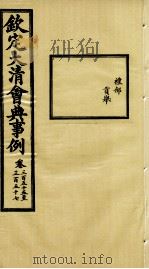 禮部
貢舉
欽定大清會典事例
卷三百五十五至
三百五十七
mtoou.info